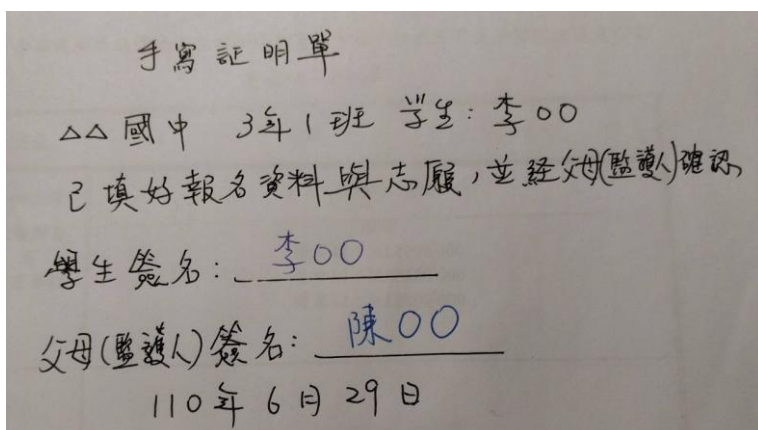 手寫証明單
△△國中 3年1班 学生:李○○
已填好報名資料與志願,並経父母(監護人)確認
學生簽名:李○○
父母(監護人)簽名:陳○○
110年6月29日